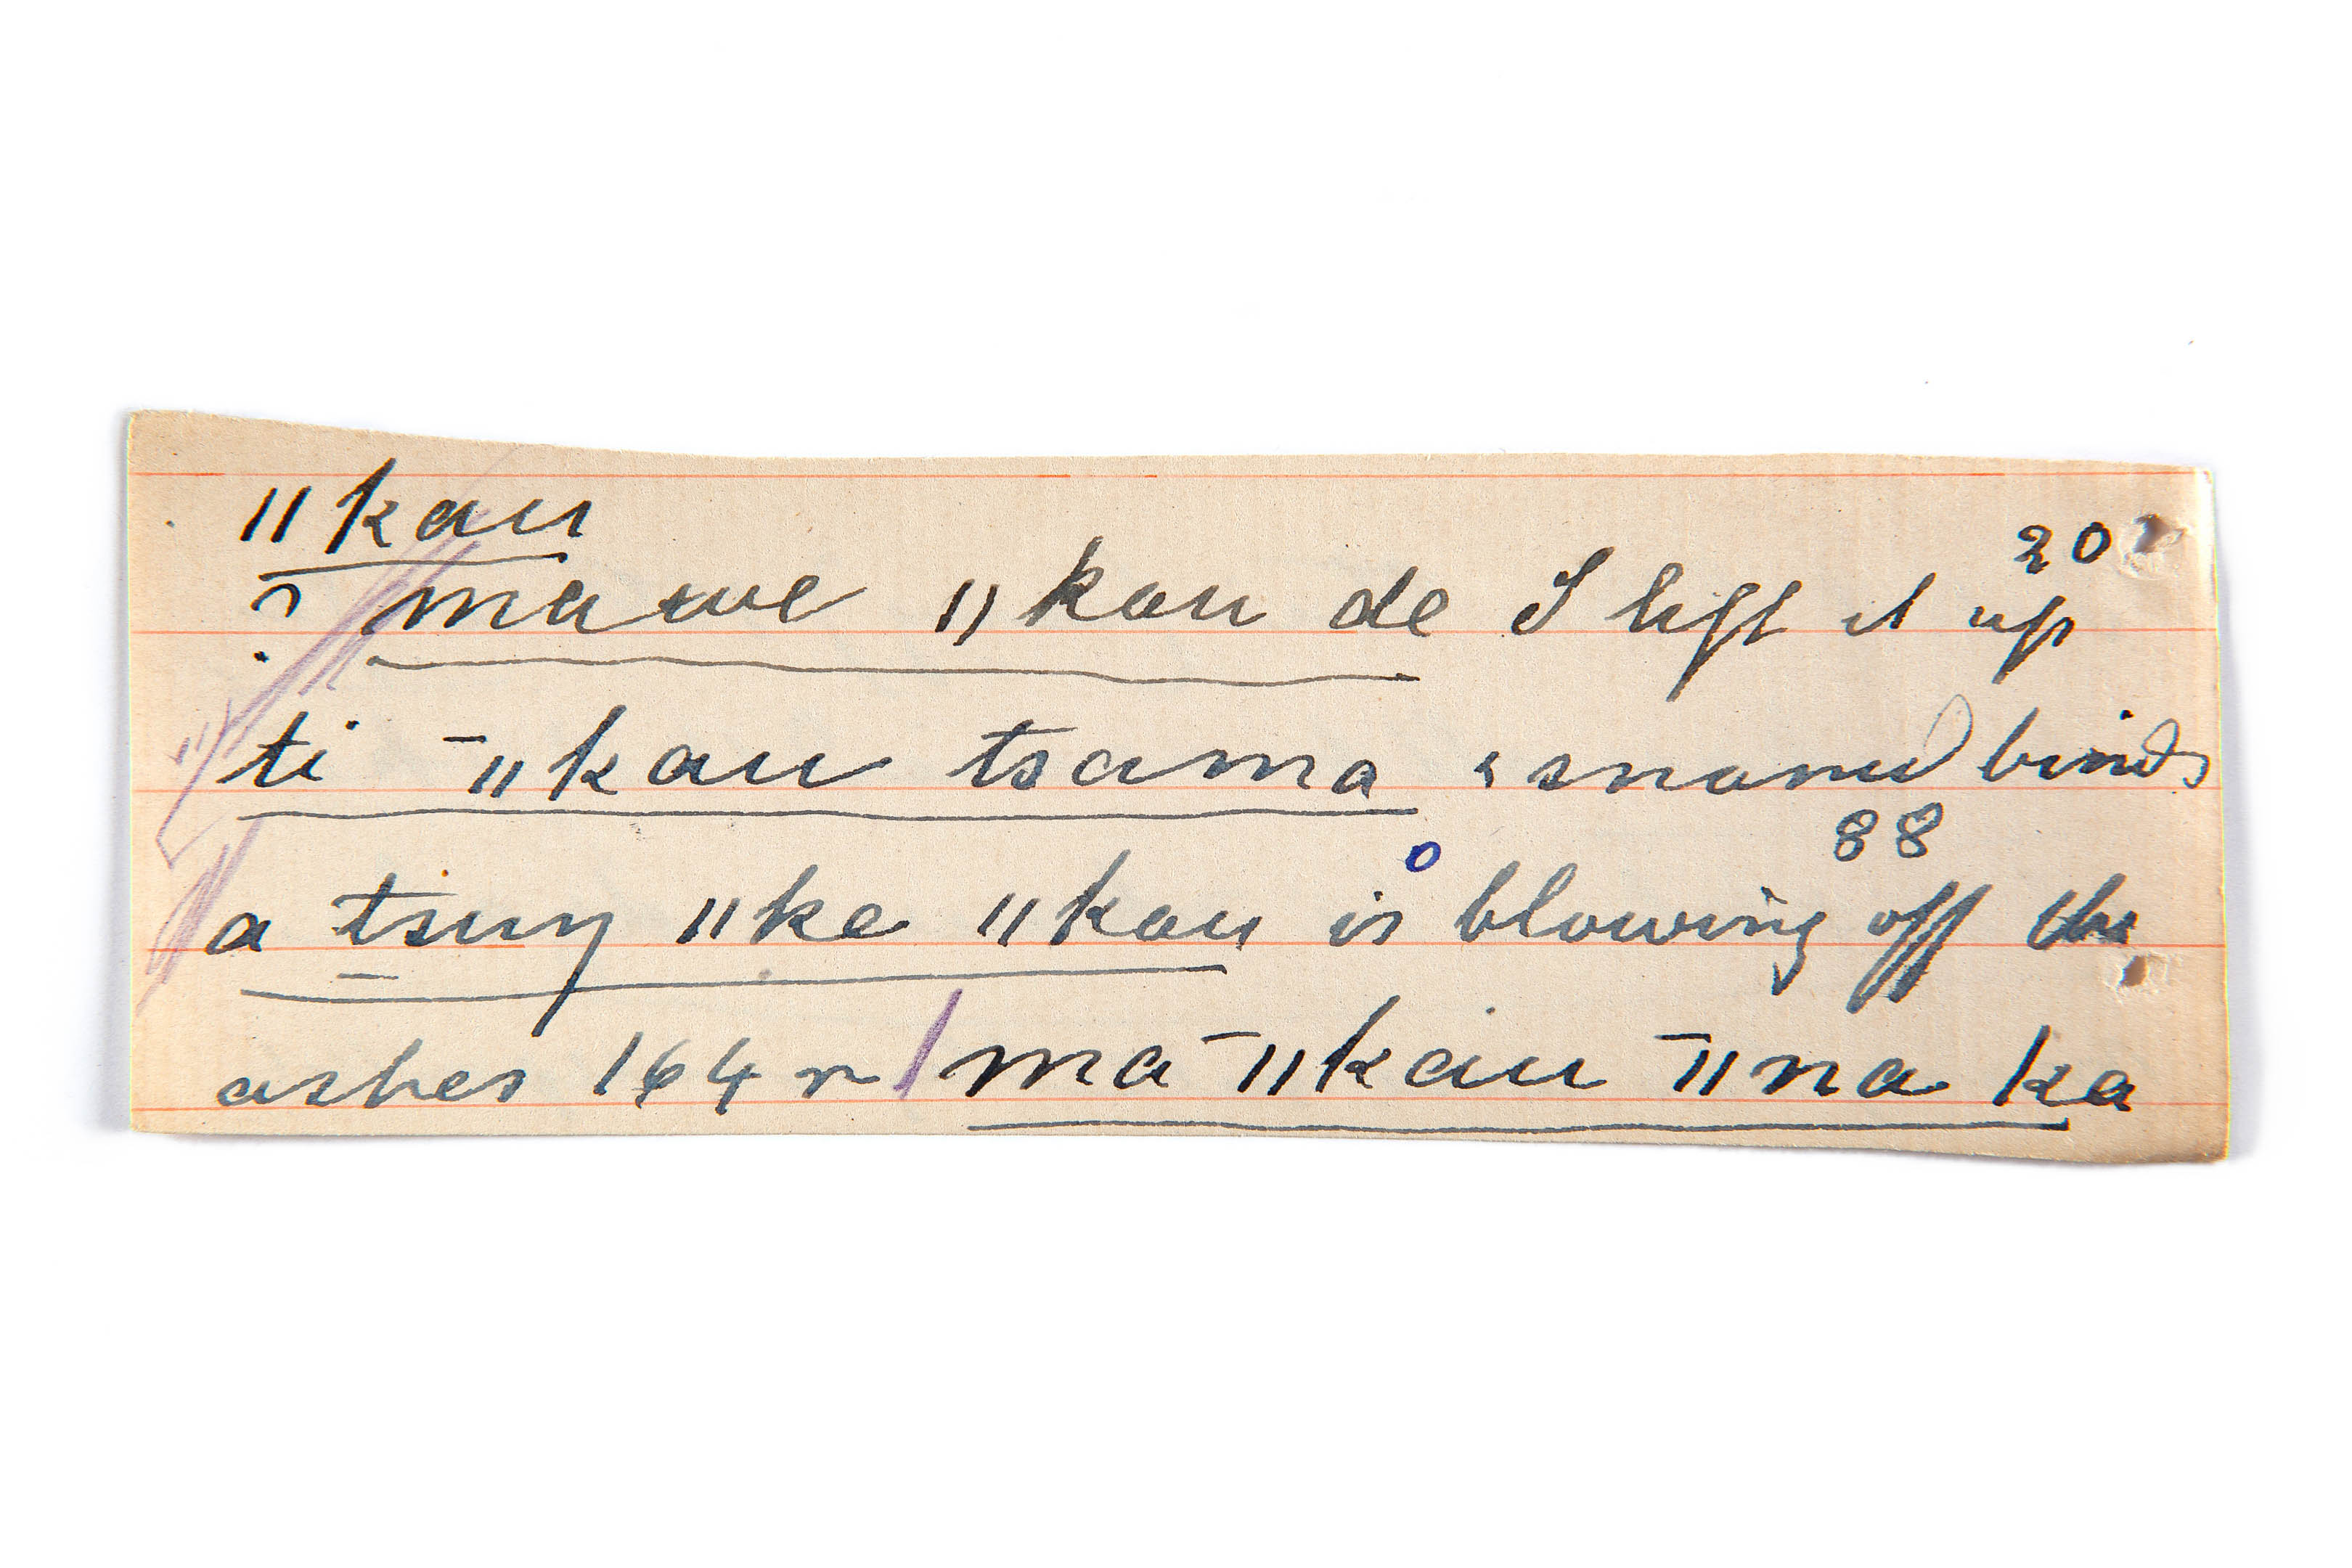 ǁkau
? mawe ǁkau de I lift it up 20
ti ¯ǁkau tsama snared birds 88
a tsuŋ ǁke ǁkau is blowing off the
ashes 164 r / ma ¯ǁkau ¯ǁna ka